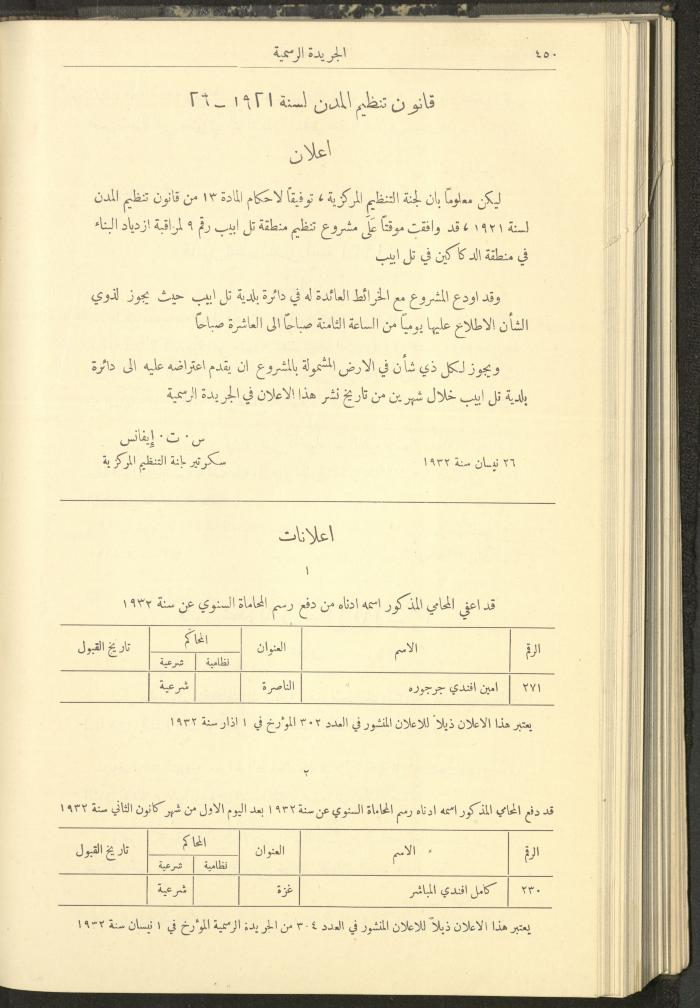 ٤٥٠
الجريدة الرسمية
قانون تنظيم المدن لسنة ١٩٢١ ـ ٢٩
اعلان
ليكن معلوماً بان لجنة التنظيم المركزية ، توفيقاً لاحكام المادة ١٣ من قانون تنظيم المدن
لسنة ١٩٢١ ، قد وافقت موقتاً عَلَى مشروع تنظيم منطقة تل ابيب رقم ٩ لمراقبة ازدياد البناء
في منطقة الدكاكين في تل ابيب
وقد اودع المشروع مع الخرائط العائدة له في دائرة بلدية تل ابيب حيث يجوز لذوي
الشأن الاطلاع عليها يومياً من الساعة الثامنة صباحاً الى العاشرة صباحاً
ويجوز لكل ذي شأن في الارض المشمولة بالمشروع ان يقدم اعتراضه عليه الى دائرة
بلدية تل ابيب خلال شهرين من تاريخ نشر هذا الاعلان في الجريدة الرسمية
س ٠ ت ٠ إيفانس
٢٦ نيسان سنة ١٩٣٢
سكرتير لجنة التنظيم المركزية
اعلانات
١
قد اعفي المحامي المذكور اسمه ادناه من دفع رسم المحاماة السنوي عن سنة ١٩٣٢
الرقم الاسم العنوان المحاكم تاريخ القبول
نظامية شرعية
٢٧١ امين افندي جرجوره الناصرة شرعية
يعتبر هذا الاعلان ذيلاً للاعلان المنشور في العدد ٣٠٢ المؤرخ في ١ اذار سنة ١٩٣٢
٢
قد دفع المحامي المذكور اسمه ادناه رسم المحاماة السنوي عن سنة ١٩٣٢ بعد اليوم الاول من شهر كانون الثاني سنة ١٩٣٢
الرقم الاسم العنوان المحاكم تاريخ القبول
نظامية شرعية
٢٣٠ كامل افندي المباشر غزة شرعية
يعتبر هذا الاعلان ذيلاً للاعلان المنشور في العدد ٣٠٤ من الجريدة الرسمية المؤرخ في ١ نيسان سنة ١٩٣٢